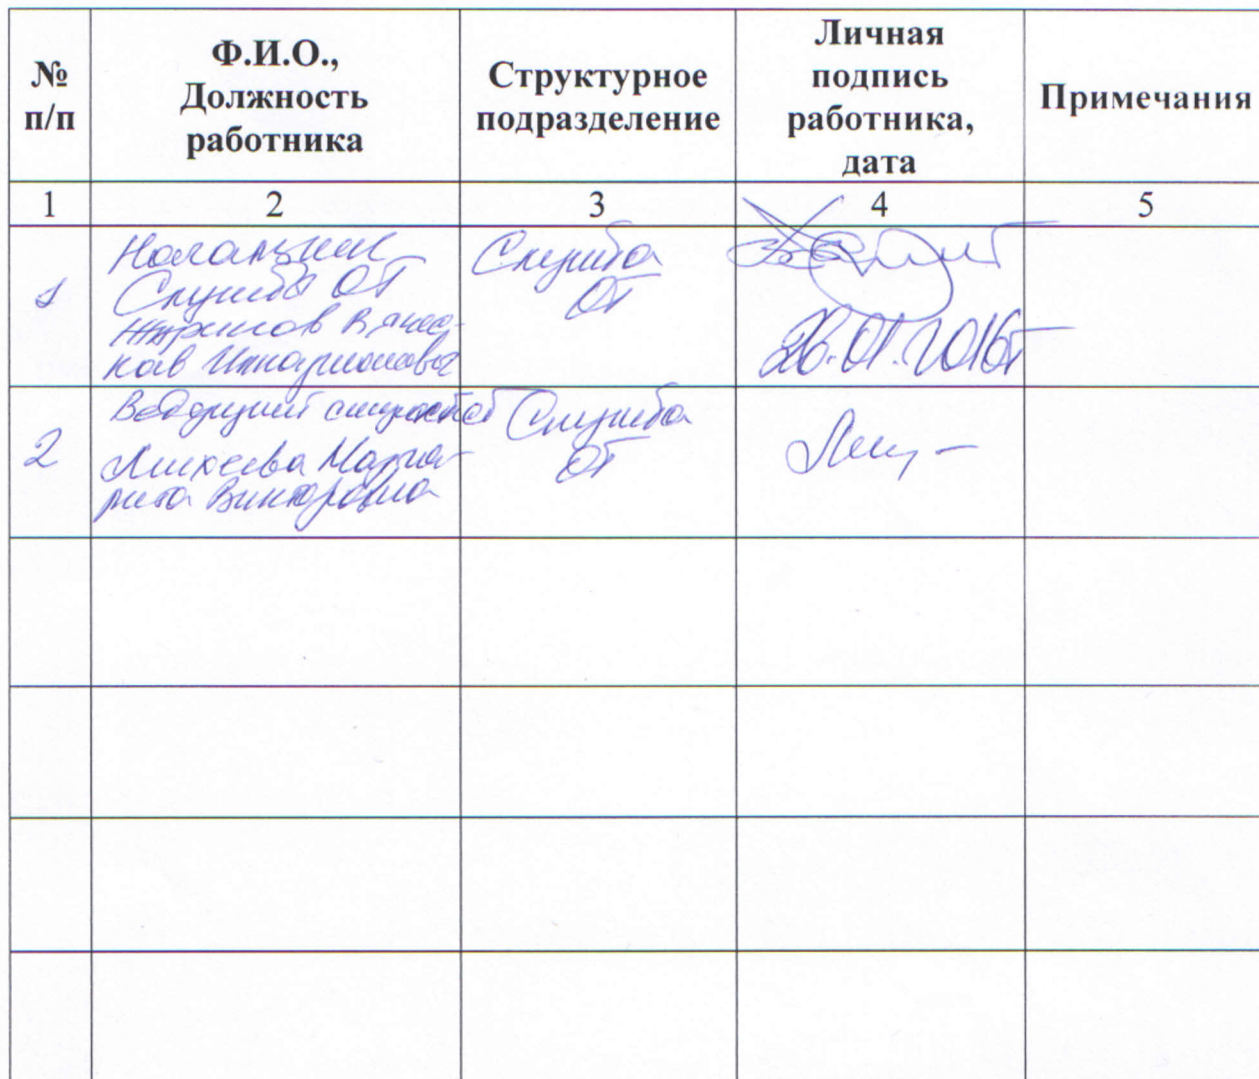 № п/п
Ф.И.О., Должность работника
Структурное подразделение
Личная подпись работника, дата
Примечания
1 2 3 4 5
1
Начальник
Службы ОТ
Служба
ОТ
26.01.2016г
2
Ведущий специалист
Михеева Марга-
рита Викторовна
Служба
ОТ